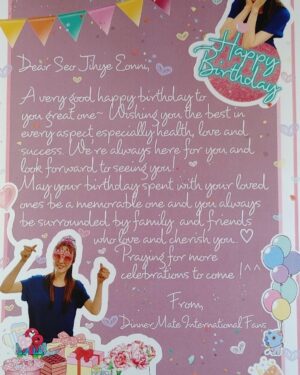 Happy
Birthday
Dear Seo Jihye Eonni,
A very good happy birthday to
you great one~ Wishing you the best in
every aspect especially health, love and
success. We're always here for you and
look forward to seeing you.
May your birthday spent with your loved
ones be a memorable one and you always
be surrounded by family and friends
who love and cherish you. ♡
Praying for more
celebrations to come! ^^
From,
Dinner Mate International Fans